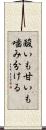 酸いも甘いも
噛み分ける